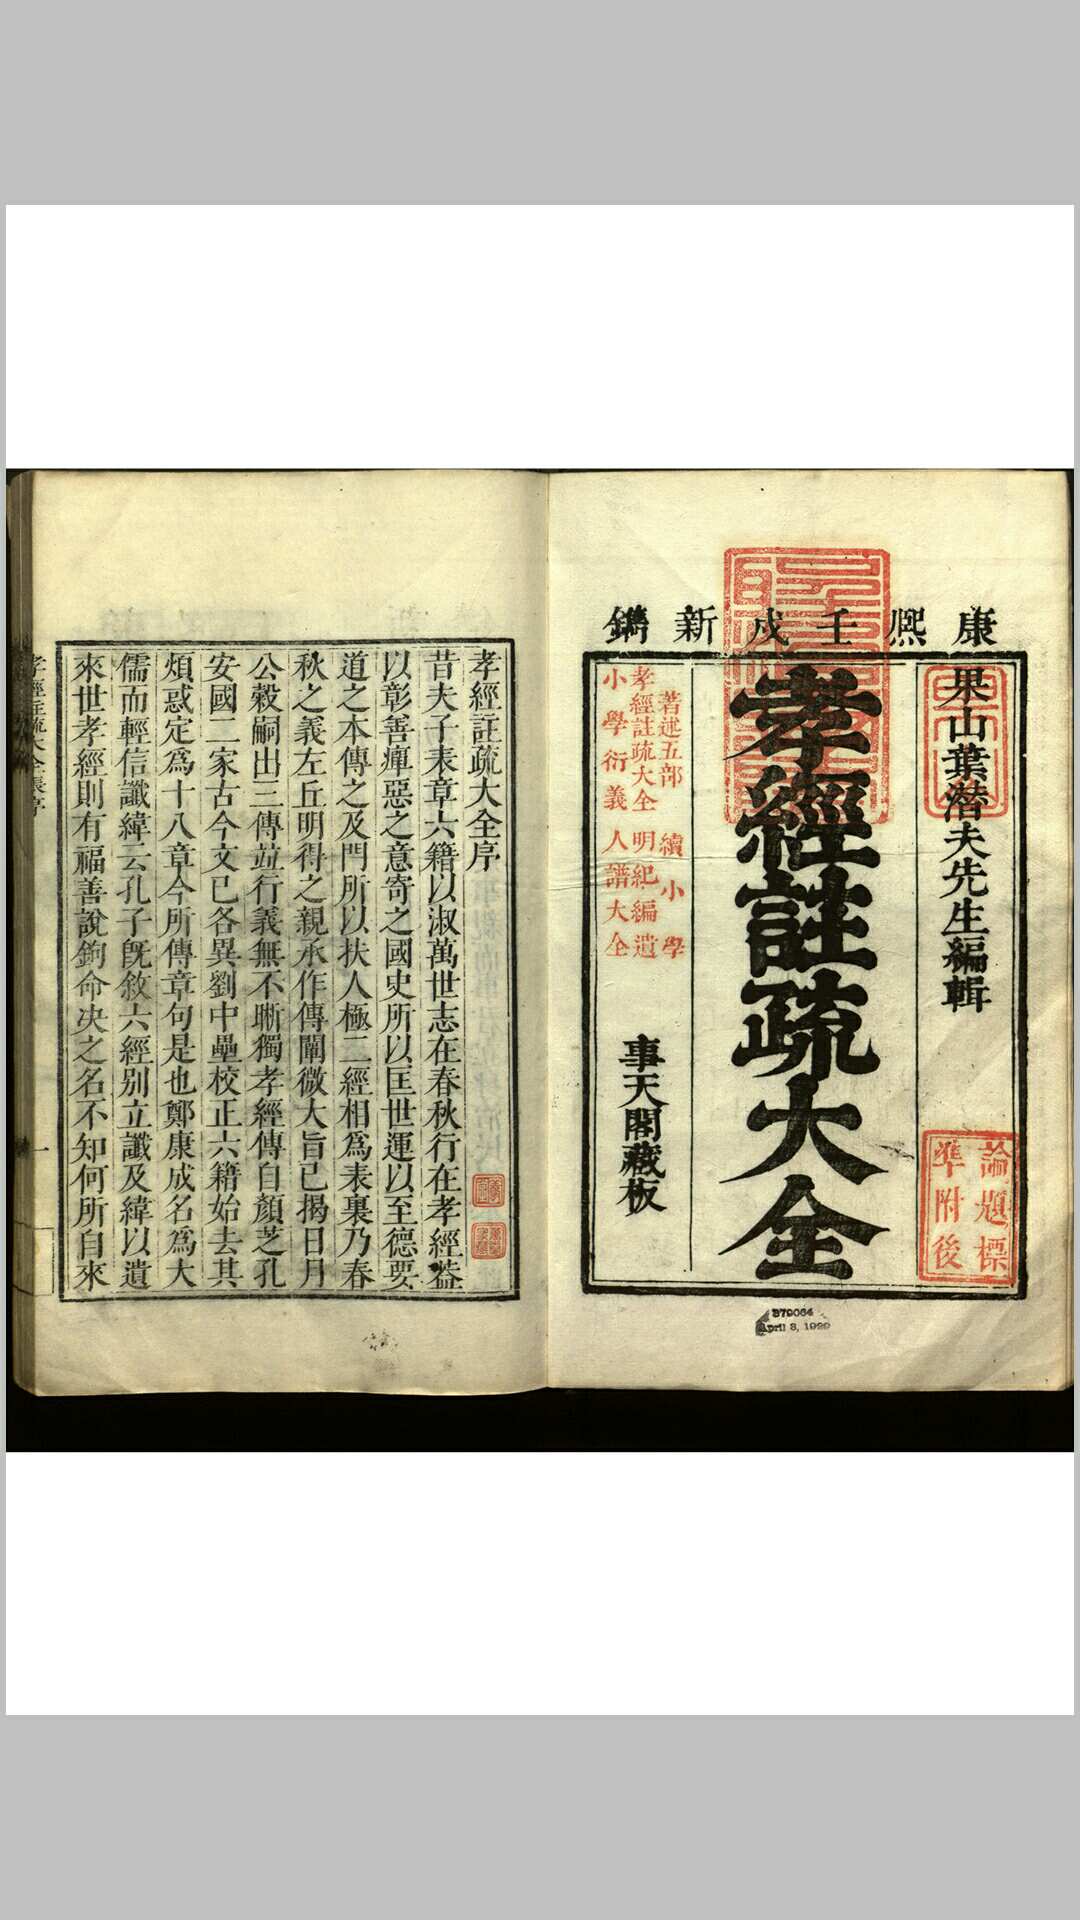 康熙壬戌新鐫
果山葉潛夫先生編輯
論題標
準附後
孝經註疏大全
著述五部　續小學
孝經註疏大全　明紀編遺
小學衍義　人譜大全
事天閣藏板
379064
April 3, 1929
孝經註疏大全序
昔夫子表章六籍以淑萬世志在春秋行在孝經葢
以彰善癉惡之意寄之國史所以匡世運以至德要
道之本傳之及門所以扶人極二經相為表裏乃春
秋之義左丘明得之親承作傳闡微大旨已揭日月
公穀嗣出三傳並行義無不晰獨孝經傳自顏芝孔
安國二家古今文已各異劉中壘校正六籍始去其
煩惑定為十八章今所傳章句是也鄭康成名為大
儒而輕信讖緯云孔子既敘六經別立讖及緯以遺
來世孝經則有福善說鉤命决之名不知何所自來
孝經註疏大全張序
一